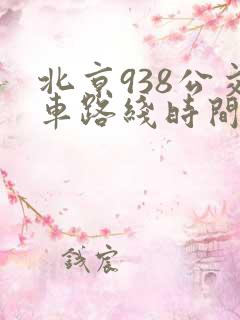 北京938公交
車路綫時間
錢宸